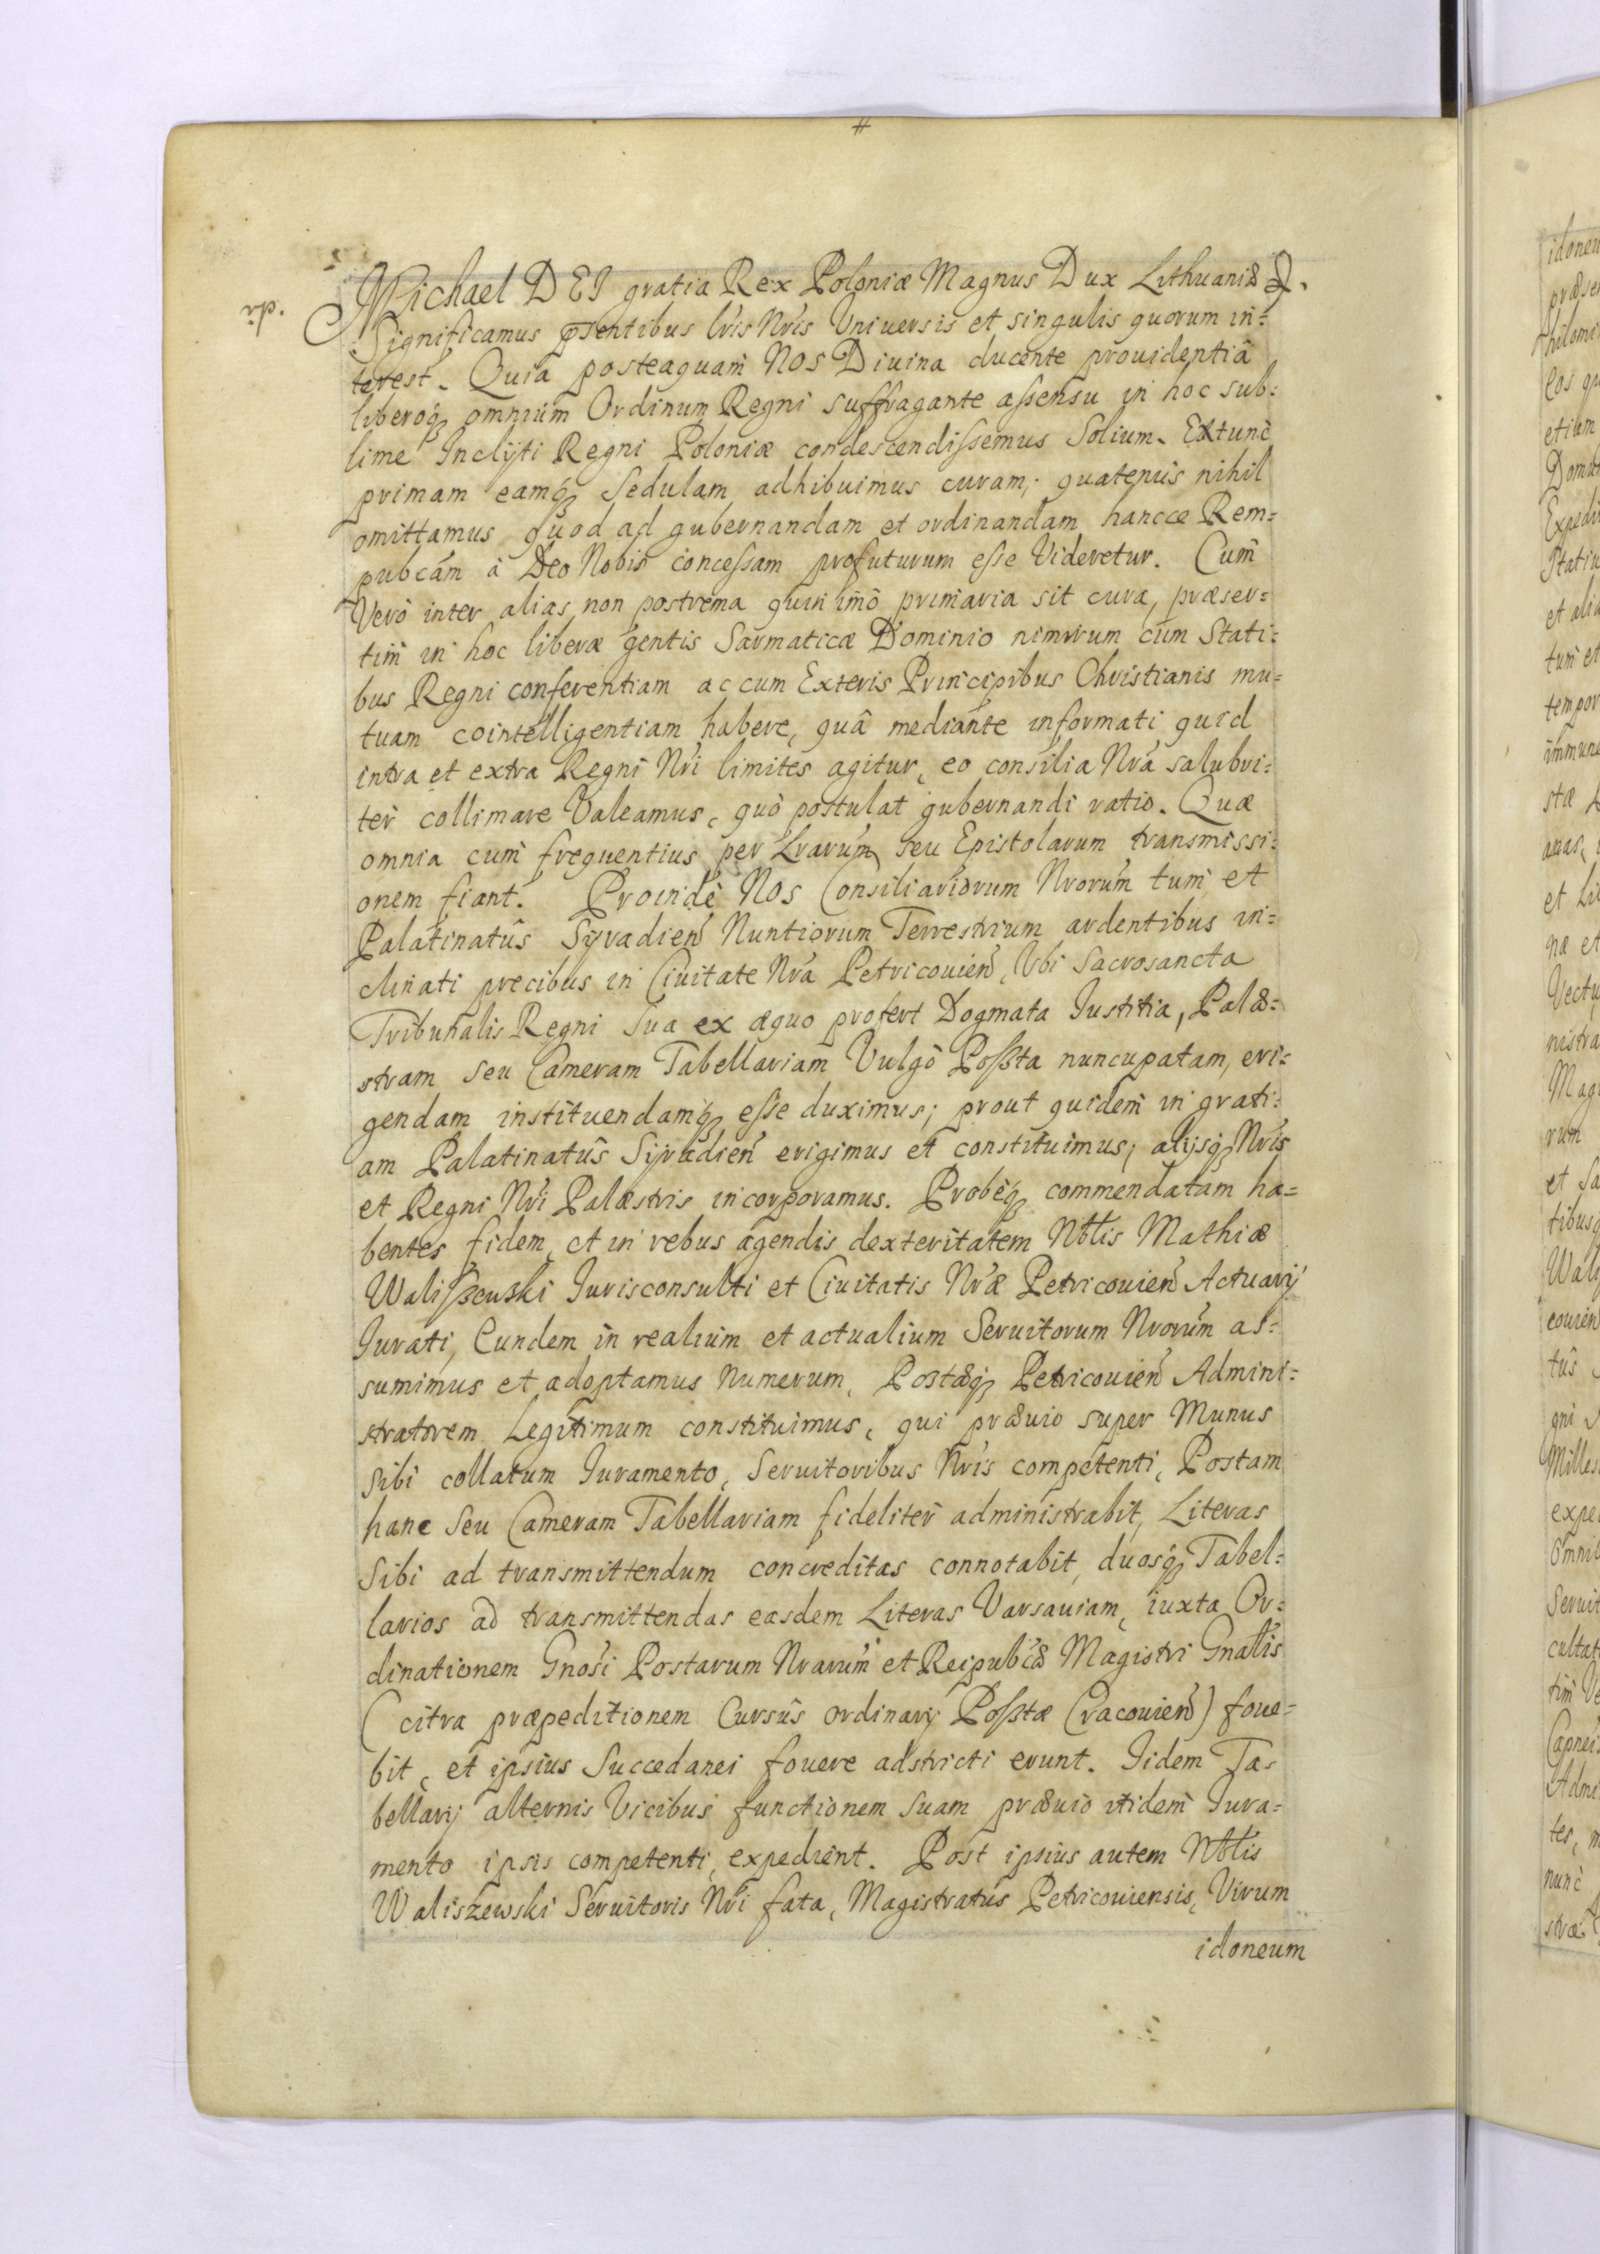 Michael DEI gratia Rex Poloniæ Magnus Dux Lithuaniæ &.
Significamus p̄sentibus lr̃is Nr̃is Vniuersis et singulis quorum in=
terest. Quia posteaquam̃ NOS Diuina ducente prouidentiâ
liberoq; omnium Ordinum Regni suffragante aſsensu in hoc sub=
lime Inclÿti Regni Poloniæ condescendiſsemus Solium. Extunc
primam eamq; Sedulam adhibuimus curam; quatenùs nihil
omittamus quod ad gubernandam et ordinandam hancce Rem=
pubcám à Deo Nobis conceſsam profuturum eſse Videretur. Cum̃
Verò inter alias non postrema quin imò primaria sit cura, præser=
tim̃ in hoc liberæ gentis Sarmaticæ Dominio nimirum cum Stati=
bus Regni conferentiam ac cum Exteris Principibus Christianis mu=
tuam cointelligentiam habere, quâ mediante informati quid
intra et extra Regni Nr̃i limites agitur, eo consilia Nr̃a salubri=
ter collimare Valeamus, quò postulat gubernandi ratio. Quæ
omnia cum̃ frequentius per Lrarum̃ seu Epistolarum transmissi=
onem fiant. Proindè NOS Consiliariorum Nrorum̃ tum et
Palatinatûs Syradieñ Nuntiorum Terrestrium ardentibus in=
clinati precibus in Ciuitate Nr̃a Petricouieñ, Vbi Sacrosancta
Tribunalis Regni Sua ex æquo profert Dogmata Iustitia, Palæ=
stram seu Cameram Tabellariam Vulgò Poſsta nuncupatam, eri=
gendam instituendamq; eſse duximus; prout quidem̃ in grati=
am Palatinatûs Syradieñ erigimus et constituimus; alijsq; Nr̃is
et Regni Nr̃i Palæstris incorporamus. Probèq; commendatam ha=
bentes fidem, et in rebus agendis dexteritatem Nb̃lis Mathiæ
Waliſsewski Iurisconsulti et Ciuitatis Nr̃æ Petricouieñ Actuarij
Iurati, Eundem in realium et actualium Seruitorum Nrorum̃ as=
sumimus et adoptamus Numerum, Postæq; Petricouieñ Admini=
stratorem Legitimum constituimus, qui præuio super Munus
Sibi collatum Iuramento, Seruitoribus Nr̃is competenti, Postam
hanc Seu Cameram Tabellariam fideliter administrabit, Literas
Sibi ad transmittendum concreditas connotabit, duosq; Tabel=
larios ad transmittendas easdem Literas Varsauiam, iuxta Or=
dinationem Gnosi Postarum Nrarum̃ et Reipubcæ Magistri Gnalis
(citra præpeditionem Cursûs ordinarij Poſstæ Cracouieñ) foue=
bit, et ipsius Succedanei fouere adstricti erunt. Iidem Ta=
bellarij alternis Vicibus functionem suam præuio itidem̃ Iura=
mento ipsis competenti, expedient. Post ipsius autem Nb̃lis
Waliszewski Seruitoris Nr̃i fata, Magistratus Petricouiensis, Virum
idoneum